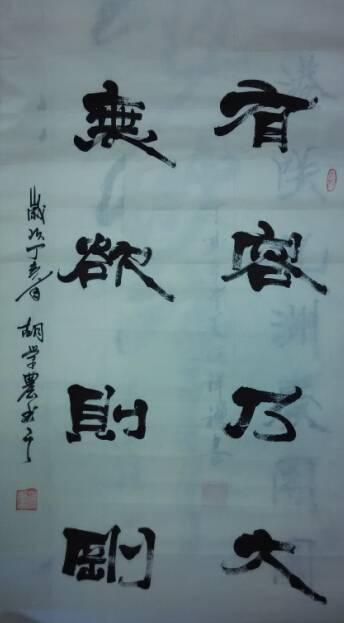 有容乃大
無欲則剛
歲次丁亥春 胡学農書